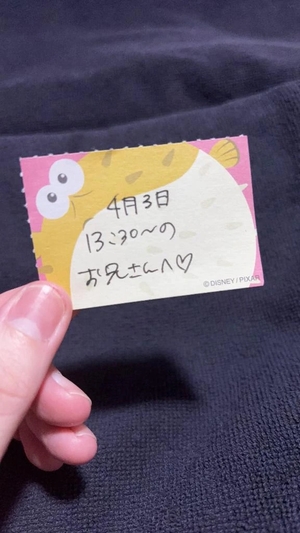 4月3日
13:30〜の
お兄さんへ♡
©DISNEY/PIXAR